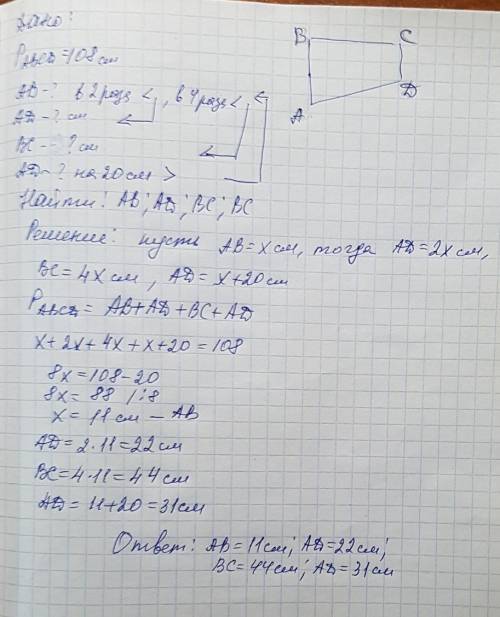 Дано:
B C
P ABCD = 108 см
AB - ? в 2 раза <, в 4 раза <
D
A
AD - ? см
BC - ? см
AD - ? на 20 см >
Найти: AB; AD; BC; BC
Решение: пусть AB = x см, тогда AD = 2x см,
BC = 4x см, AD = x + 20 см
P ABCD = AB + AD + BC + AD
x + 2x + 4x + x + 20 = 108
8x = 108 - 20
8x = 88 / :8
x = 11 см - AB
AD = 2 · 11 = 22 см
BC = 4 · 11 = 44 см
AD = 11 + 20 = 31 см
Ответ: AB = 11 см; AD = 22 см;
BC = 44 см; AD = 31 см